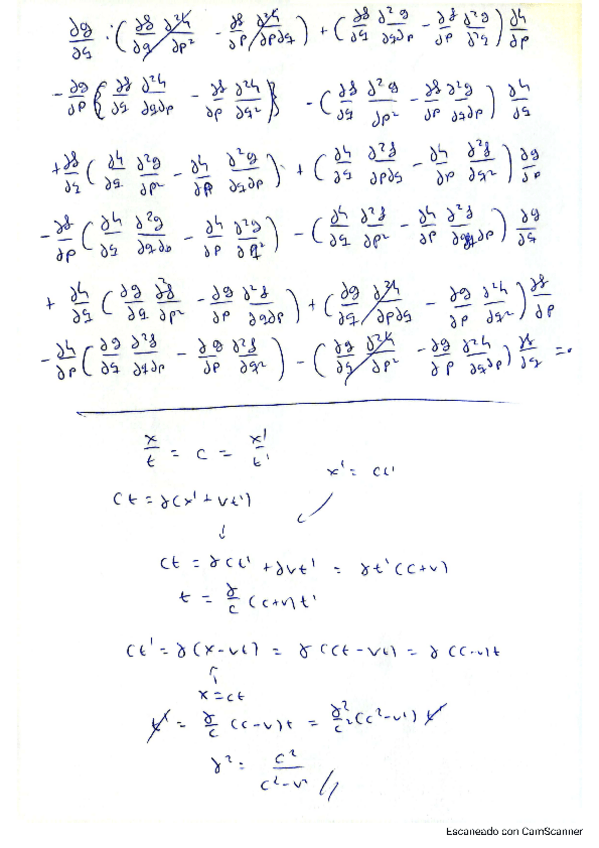 ∂g/∂q · (∂f/∂q ∂²h/∂p² - ∂f/∂p ∂²h/∂p∂q) + (∂f/∂q ∂²g/∂q∂p - ∂f/∂p ∂²g/∂²q) ∂h/∂p
- ∂g/∂p (∂f/∂q ∂²h/∂q∂p - ∂f/∂p ∂²h/∂q²) - (∂f/∂q ∂²g/∂p² - ∂f/∂p ∂²g/∂q∂p) ∂h/∂q
+ ∂f/∂q (∂h/∂q ∂²g/∂p² - ∂h/∂p ∂²g/∂q∂p) + (∂h/∂q ∂²f/∂p∂q - ∂h/∂p ∂²f/∂q²) ∂g/∂p
- ∂f/∂p (∂h/∂q ∂²g/∂q∂p - ∂h/∂p ∂²g/∂q²) - (∂h/∂q ∂²f/∂p² - ∂h/∂p ∂²f/∂q∂p) ∂g/∂q
+ ∂h/∂q (∂g/∂q ∂²f/∂p² - ∂g/∂p ∂²f/∂q∂p) + (∂g/∂q ∂²h/∂p∂q - ∂g/∂p ∂²h/∂q²) ∂f/∂p
- ∂h/∂p (∂g/∂q ∂²f/∂q∂p - ∂g/∂p ∂²f/∂q²) - (∂g/∂q ∂²h/∂p² - ∂g/∂p ∂²h/∂q∂p) ∂f/∂q = 0
x/t = c = x'/t'
x' = ct'
ct = γ(x' + vt')
ct = γct' + γvt' = γt'(c+v)
t = γ/c (c+v)t'
ct' = γ(x-vt) = γ(ct-vt) = γ(c-v)t
x = ct
t' = γ/c (c-v)t = γ²/c² (c²-v²) t'
γ² = c²/(c²-v²) //
Escaneado con CamScanner